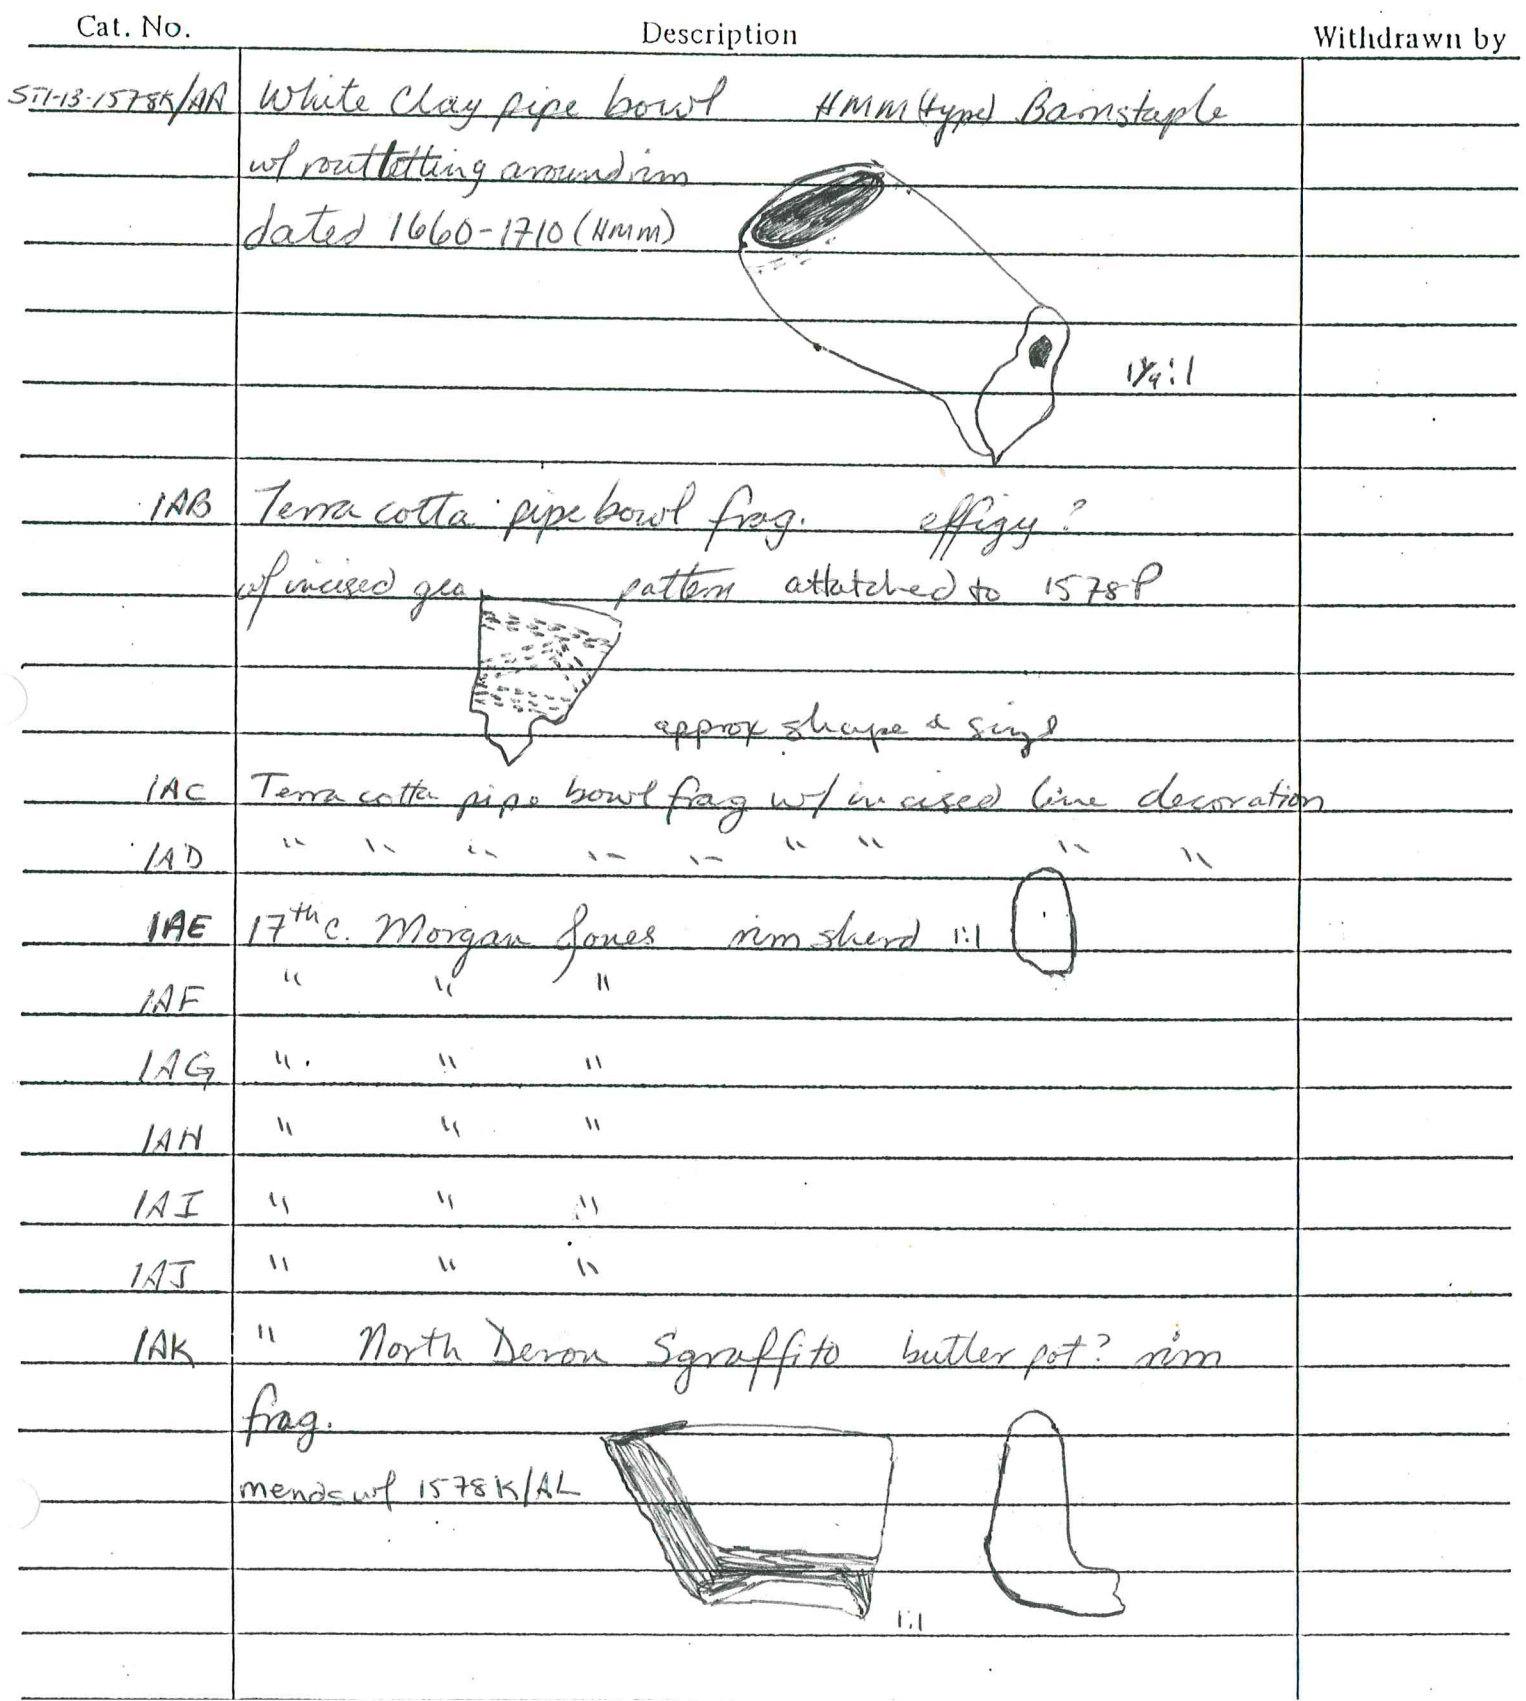 Cat. No. Description Withdrawn by
ST1-13-1578K/AA White Clay pipe bowl HMM (type) Barnstaple
w/ routletting around rim
dated 1660-1710 (HMM)
1 1/4:1
1AB Terra cotta pipe bowl frag. effigy?
w/ incised geo pattern attatched to 1578P
approx shape & size
1AC Terra cotta pipe bowl frag w/ incised line decoration
1AD " " " " " " " " "
1AE 17th c. Morgan Jones rim sherd 1:1
1AF " " "
1AG " " "
1AH " " "
1AI " " "
1AJ " " "
1AK " North Devon Sgraffito butter pot? rim
frag.
mends w/ 1578K/AL
1:1